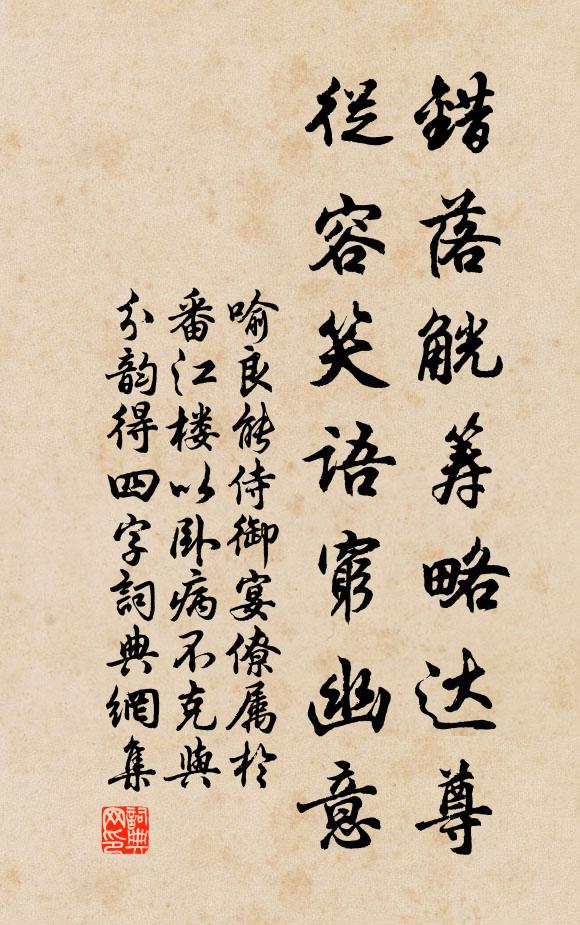 錯落觥筹略达尊
從容笑语窮幽意
喻良能侍御宴僚属於
番江楼以卧病不克與
分韵得四字詞典網集
詞典网印